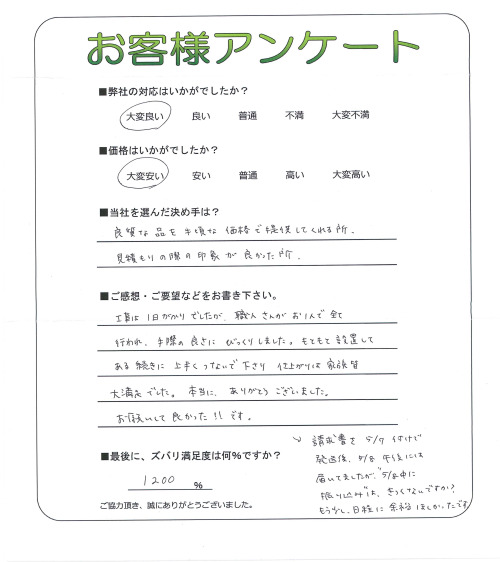 お客様アンケート
■弊社の対応はいかがでしたか?
大変良い 良い 普通 不満 大変不満
■価格はいかがでしたか?
大変安い 安い 普通 高い 大変高い
■当社を選んだ決め手は?
良質な品を手頃な価格で提供してくれる所.
見積もりの際の印象が良かった所.
■ご感想・ご要望などをお書き下さい。
工事は1日がかりでしたが、職人さんがお1人で全て
行われ、手際の良さにびっくりしました。もともと設置して
ある続きに上手くつないで下さり仕上がりは家族皆
大満足でした。本当に、ありがとうございました。
お願いして良かった!!です。
■最後に、ズバリ満足度は何%ですか?
1200 %
ご協力頂き、誠にありがとうございました。
請求書を5/7付けで
発送後、5/8午後には
届いてましたが、5/8中に
振り込みは、きつくないですか?
もう少し、日程に余裕ほしかったです